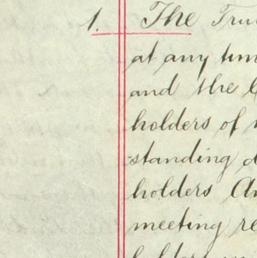 1. The
at any time
and the
holders of
standing
holders
meeting